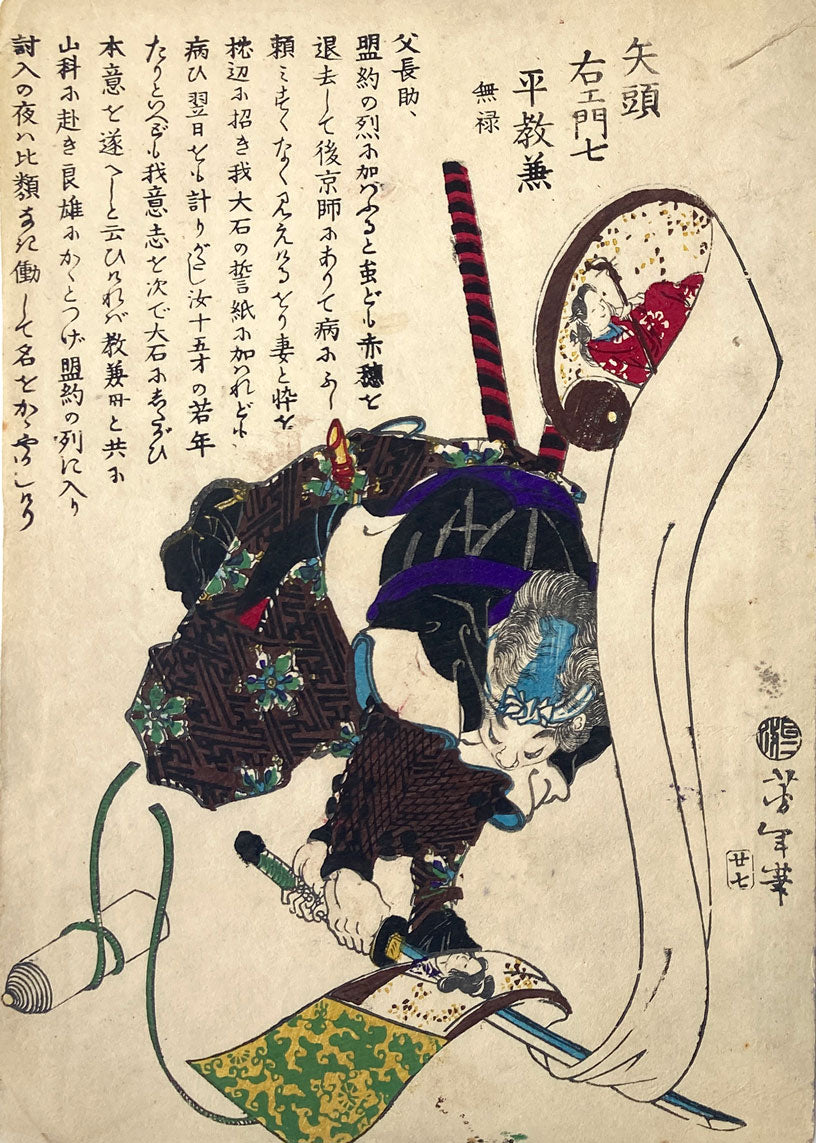 矢頭
右エ門七
平教兼
無禄
父長助、
盟約の烈尓加ハふると虽ども赤穂を
退去して後京師尓ありて病尓ふし
頼ミすくなく見えけるをり妻と忰を
枕辺尓招き我大石の誓紙尓加ハれども
病ひ翌日をも計りがたし汝十五才の若年
たりといへども我意志を次で大石尓志たがひ
本意を遂へしと云ひけれバ教兼母と共尓
山科尓赴き良雄尓かくとつげ盟約の列に入り
討入の夜ハ比類なき働して名をかゝやかしけり
芳年筆
廿七